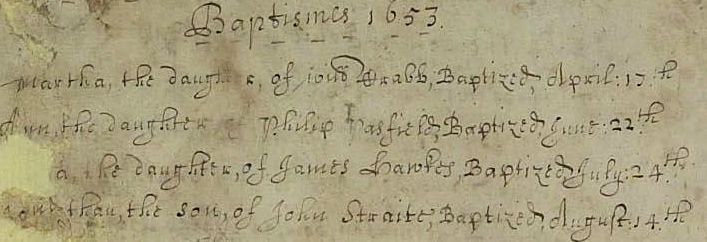 Baptismes 1653.
Martha, the daughter, of Crabb, Baptized, April: 17th
Ann, the daughter of Philip Pasfield, Baptized June: 22th
the daughter, of James Hawkes, Baptized July: 24th.
the son, of John Straite, Baptized, August. 14th